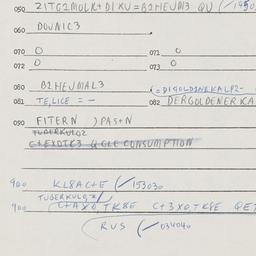 050 21TG2MOLK+D1KU=B2HEUM3 QU (/1450
060 DOUNIC3
070 0 071 0
072 0 073 0
080 B2HEUMAL3 (=D1GOLD2NEKALP2-
081 TE,LICE = - 082 DERGOLDENER KA
090 FITERN )PAS+N
TUBERKUL92
C+EXDTK3 & GLE CONSUMPTION
900 KL8AC+E (/153030
TUBERKUL92/
900 C+AX0TK8E C+3X0TK8E QET
RUS (/034040